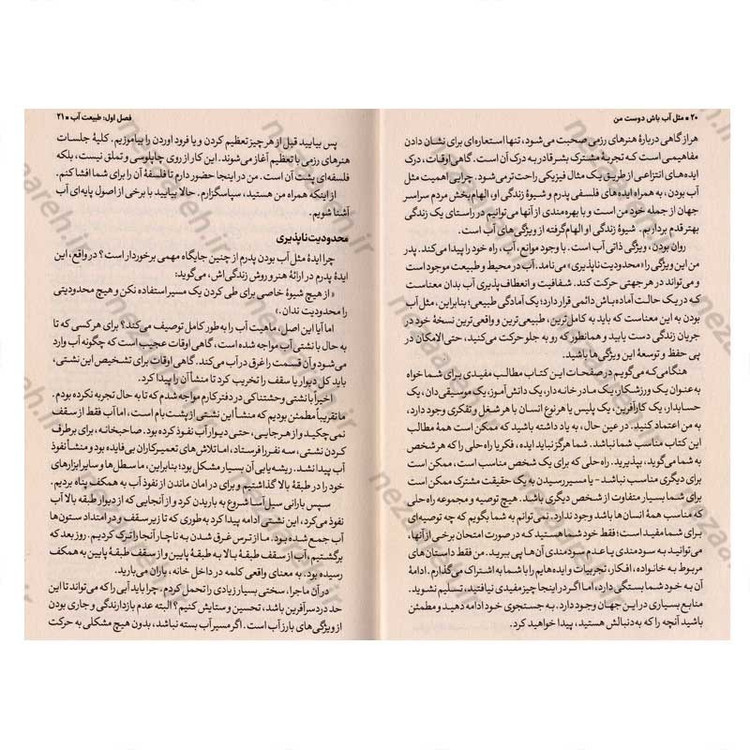 ۲۰ • مثل آب باش دوست من
هر از گاهی دربارهٔ هنرهای رزمی صحبت می‌شود، تنها استعاره‌ای برای نشان دادن
مفاهیمی است که تجربهٔ مشترک بشر قادر به درک آن است. گاهی اوقات، درک
ایده‌های انتزاعی از طریق یک مثال فیزیکی راحت‌تر می‌شود. چرایی اهمیت مثل
آب بودن، به همراه ایده های فلسفی پدرم و شیوهٔ زندگی او، الهام‌بخش مردم سراسر
جهان از جمله خود من است و با بهره‌مندی از آنها می‌توانیم در راستای یک زندگی
بهتر قدم برداریم. شیوهٔ زندگی او الهام‌گرفته از ویژگی‌های آب است.
روان بودن، ویژگی ذاتی آب است. با وجود موانع، آب، راه خود را پیدا می‌کند. پدر
من این ویژگی را «محدودیت ناپذیری» می‌نامد. آب در محیط و طبیعت موجود است
و می‌تواند در هر جهتی حرکت کند. شفافیت و انعطاف‌پذیری آب بدان معناست
که در یک حالت آماده‌باش دائمی قرار دارد؛ یک آمادگی طبیعی؛ بنابراین، مثل آب
بودن به این معناست که باید به کامل‌ترین، طبیعی‌ترین و واقعی‌ترین نسخهٔ خود در
جریان زندگی دست یابید و همانطور که رو به جلو حرکت می‌کنید، حتی الامکان در
پی حفظ و توسعهٔ این ویژگی‌ها باشید.
هنگامی‌که می‌گویم در صفحات این کتاب مطالب مفیدی برای شما خواه
به عنوان یک ورزشکار، یک مادر خانه دار، یک دانش‌آموز، یک موسیقی دان، یک
حسابدار، یک کارآفرین، یک پلیس یا هر نوع انسان با هر شغل و تفکری وجود دارد،
به من اعتماد کنید. در عین حال، به یاد داشته باشید که ممکن است همهٔ مطالب
این کتاب مناسب شما نباشد. شما هرگز نباید ایده، فکر یا راه حلی را که هر شخص
به شما می‌گوید، بپذیرید. راه حلی که برای یک شخص مناسب است، ممکن است
برای دیگری مناسب نباشد - یا مسیر رسیدن به یک حقیقت مشترک ممکن است
برای شما بسیار متفاوت از شخص دیگری باشد. هیچ توصیه و مجموعه راه حلی
مناسب همهٔ انسان ها باشد وجود ندارد. نمی‌توانم به شما بگویم که چه توصیه‌ای
برای شما مفید است؛ فقط خود شما هستید که در صورت امتحان برخی از آنها،
می‌توانید به سودمندی یا عدم سودمندی آن‌ها پی ببرید. من فقط داستان های
مربوط به خانواده، افکار، تجربیات و ایده‌هایم را با شما به اشتراک می‌گذارم. ادامهٔ
آن به خود شما بستگی دارد، اما اگر چیز مفیدی نیافتید، تسلیم نشوید.
منابع بسیاری در این جهان وجود دارد. به جستجوی خود ادامه دهید و مطمئن
باشید آنچه را که به دنبالش هستید، پیدا خواهید کرد.
فصل اول: طبیعت آب • ۲۱
پس بیایید قبل از هر چیز تعظیم کردن و یا فرود آوردن را بیاموزیم. کلیهٔ جلسات
هنرهای رزمی با تعظیم آغاز می‌شوند. این کار از روی چاپلوسی و تملق نیست، بلکه
فلسفه‌ای پشت آن است. من در اینجا حضور دارم تا فلسفهٔ آن را برای شما افشا کنم.
از اینکه همراه من هستید، سپاسگزارم. حالا بیایید با برخی از اصول پایه‌ای آب
آشنا شویم.
محدودیت ناپذیری
چرا ایدهٔ مثل آب بودن پدرم از چنین جایگاه مهمی برخوردار است؟ در واقع، این
ایدهٔ پدرم در ارائهٔ هنر و روش زندگی‌اش، می‌گوید:
«از هیچ شیوهٔ خاصی برای طی کردن یک مسیر استفاده نکن و هیچ محدودیتی
را محدودیت ندان.»
اما آیا این اصل، ماهیت آب را به طور کامل توصیف می‌کند؟ برای هر کسی که تا
به حال با نشتی آب مواجه شده است، گاهی اوقات عجیب است که چگونه آب وارد
می‌شود و آن قسمت را غرق در آب می‌کند. گاهی اوقات برای تشخیص این نشتی،
باید کل دیوار یا سقف را تخریب کرد تا منشأ آن را پیدا کرد.
اخیراً با نشتی وحشتناکی در دفتر کارم مواجه شدم که تا به حال تجربه نکرده بودم.
ما تقریباً مطمئن بودیم که منشأ این نشتی از پشت بام است، اما آب فقط از سقف
نمی‌چکید و از هر جایی، حتی دیوار آب نفوذ کرده بود. صاحبخانه، برای برطرف
کردن نشتی، سه نفر را فرستاد، اما تلاش‌های تعمیرکاران بی‌فایده بود و منشأ نفوذ
آب پیدا نشد. ریشه‌یابی آن بسیار مشکل بود؛ بنابراین، ما سطل‌ها و سایر ابزارهای
خود را در طبقهٔ بالا گذاشتیم و برای در امان ماندن از نفوذ آب به همکف پناه بردیم.
سپس بارانی سیل آسا شروع به باریدن کرد و از آنجایی که از دیوار طبقه بالا آب
نفوذ می‌کرد، این نشتی ادامه پیدا کرد به طوری که تا زیر سقف و در امتداد ستون‌ها
آب جمع شده بود. ما از ترس غرق شدن به ناچار آنجا را ترک کردیم. روز بعد که
برگشتیم، آب از سقف طبقهٔ بالا به طبقهٔ پایین و از سقف طبقهٔ پایین به همکف
رسیده بود. به معنای واقعی کلمه در داخل خانه، باران می‌بارید.
در آن ماجرا، سختی بسیار زیادی را تحمل کردم. چرا باید آبی را که می‌تواند تا این
حد دردسرآفرین باشد، تحسین و ستایش کنیم؟ البته عدم بازدارندگی و جاری بودن
از ویژگی‌های بارز آب است. اگر مسیر آب بسته نباشد، بدون هیچ مشکلی به حرکت
nezaareh.ir